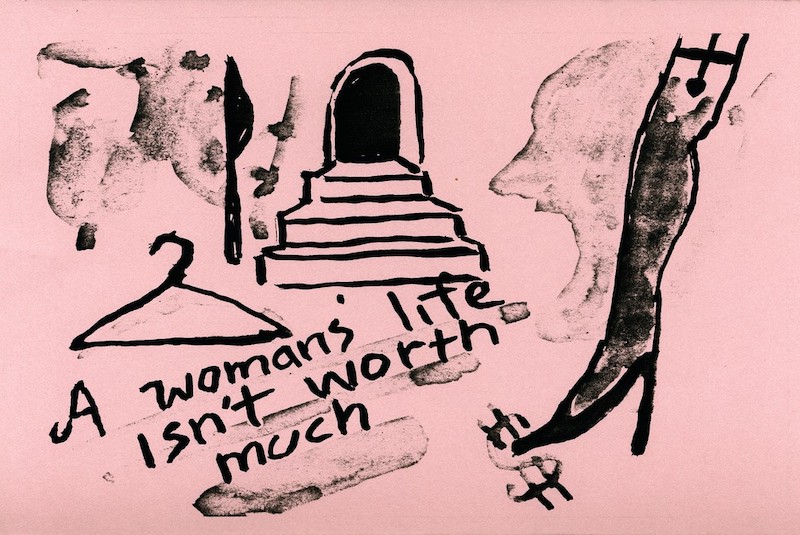 A womans' life
isn't worth
much
$
$